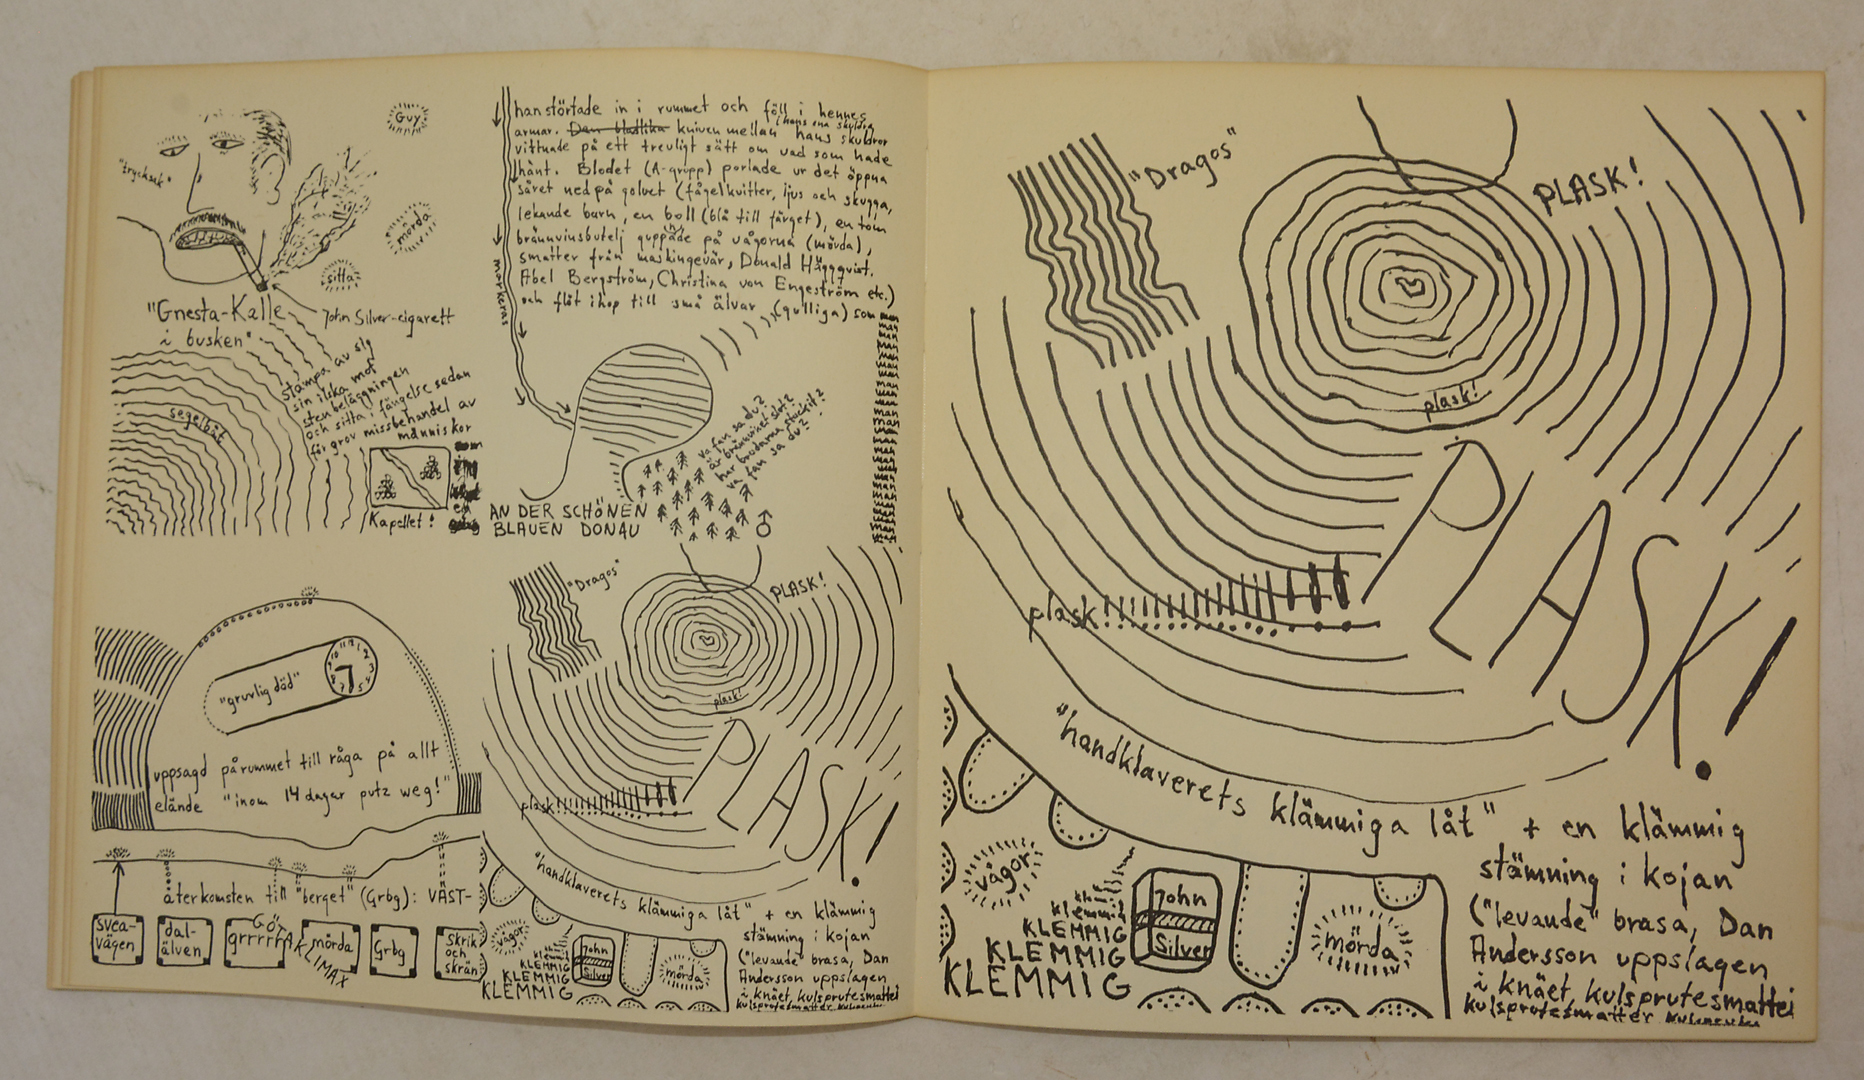 GUY
"trycksak"
mörda
sitta
"Gnesta-Kalle
i busken"
John Silver-cigarett
stampa av sig
sin ilska mot
stenbeläggningen
och sitta i fängelse sedan
för grov missbehandel av
människor
segelbåt
Kapellet!
han störtade in i rummet och föll i hennes
armar. Den bladlika kniven mellan hans skuldror
vittnade på ett trevligt sätt om vad som hade
hänt. Blodet (A-grupp) porlade ur det öppna
såret ned på golvet (fågelkvitter, ljus och skugga,
lekande barn, en boll (blå till färget), en tom
brännvinsbutelj guppade på vågorna (mörda),
smatter från maskingevär, Donald Häggqvist.
Abel Bergström, Christina von Engeström etc.)
och flöt ihop till små älvar (gulliga) som man
man
man
man
man
man
man
man
man
man
man
man
man
man
man
markeras
va fan sa du?
är brännvinet slut?
har bönderna
va fan sa du?
AN DER SCHÖNEN
BLAUEN DONAU
"gruvlig dåd"
uppsagd på rummet till råga på allt
elände "inom 14 dagar putz weg!"
återkomsten till "berget" (Grbg): VÄST-
svea-
vägen
dal-
älven
GÖTAKLIMAX
grrrrr
mörda
Grbg
skrik
och
skrän
"Dragos"
PLASK!
plask!
PLASK!
plask!!!!!!!!!!!!!!!!
"handklaverets klämmiga låt" + en klämmig
stämning i kojan
("levande" brasa, Dan
Andersson uppslagen
i knäet, kulsprutesmattei
kulsprutesmatter
vågor
klemmig
KLEMMIG
KLEMMIG
KLEMMIG
John
Silver
mörda
"Dragos"
PLASK!
plask!
PLASK!
plask!!!!!!!!!!!!!!!!
"handklaverets klämmiga låt" + en klämmig
stämning i kojan
("levande" brasa, Dan
Andersson uppslagen
i knäet, kulsprutesmattei
kulsprutesmatter
vågor
klemmig
KLEMMIG
KLEMMIG
KLEMMIG
John
Silver
mörda